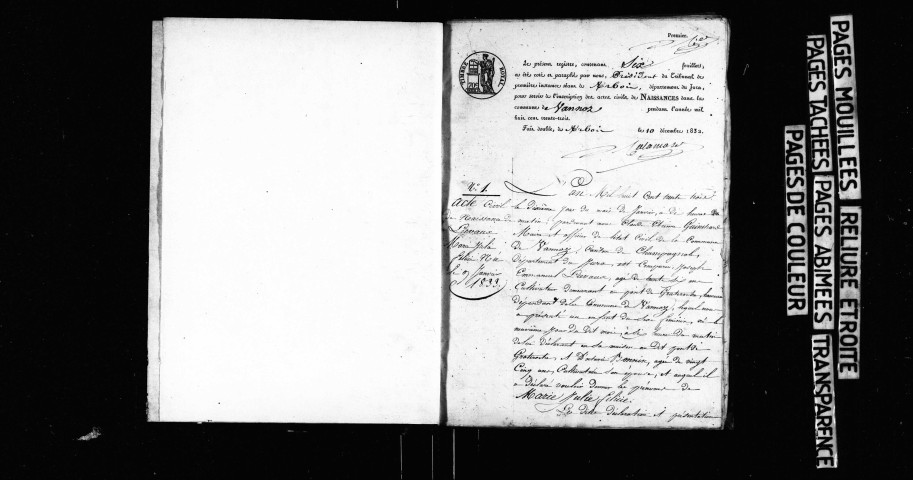 Premier.
Le présent registre, contenant Six feuillets,
a été coté et paraphé par nous, Président du Tribunal de
première instance séant à Arbois, département du Jura,
pour servir à l'inscription des actes civils de NAISSANCES dans la
commune de Vannoz pendant l'année mil
huit cent trente-trois.
Fait double, à Arbois le 10 décembre 1832.
TIMBRE ROYAL
N° 1.
acte Civil
de Naissance de
Marie Julie
félicie Née
le 9 Janvier
1833.
L'an Mil huit Cent trente trois
le dixième jour du mois de Janvier, à dix heures
du matin; pardevant nous Claude
Maire et officier de l'état Civil de la Commune
de Vannoz, Canton de Champagnole,
Département du Jura, est comparu Joseph
Emmanuel agé de trente
Cultivateur demeurant au pont de
dépendant de la Commune de Vannoz, lequel nous
a présenté un enfant du sexe féminin, né le
neuvième jour du dit mois, à heure du matin
de lui déclarant en sa maison au dit pont de
agée de vingt
Cinq ans, Cultivatrice son épouse, et auquel il
a déclaré vouloir donner les prénoms de
Marie Julie félicie.
Les dites déclaration et présentation
PAGES MOUILLEES RELIURE ETROITE
PAGES TACHEES PAGES ABIMEES TRANSPARENCE
PAGES DE COULEUR